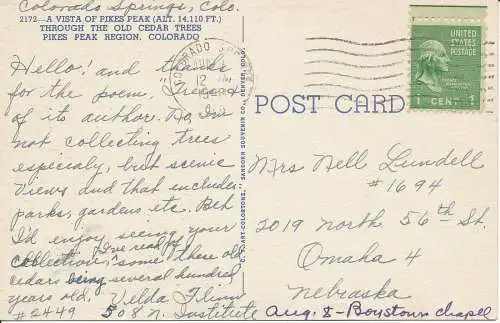 Colorado Springs, Colo.
2172—A VISTA OF PIKES PEAK (ALT. 14,110 FT.)
THROUGH THE OLD CEDAR TREES
PIKES PEAK REGION, COLORADO
Hello! and thanks
for the poem, "Trees" &
of its author. No, I'm
not collecting trees
especialy, but scenic
views and that includes
parks, gardens etc. Bet
I'd enjoy seeing your
collection. I've read of
some these old
cedars being several hundred
years old. Velda Flinn
#2449 508 N. Institute
SANBORN SOUVENIR CO., DENVER, COLO.
COLORADO
12
POST CARD
UNITED STATES
POSTAGE
1 CENT 1
Mrs Nell Lundell
#1694
2019 North 56th St.
Omaha 4
Nebraska
Aug. 8-Boystown chapel